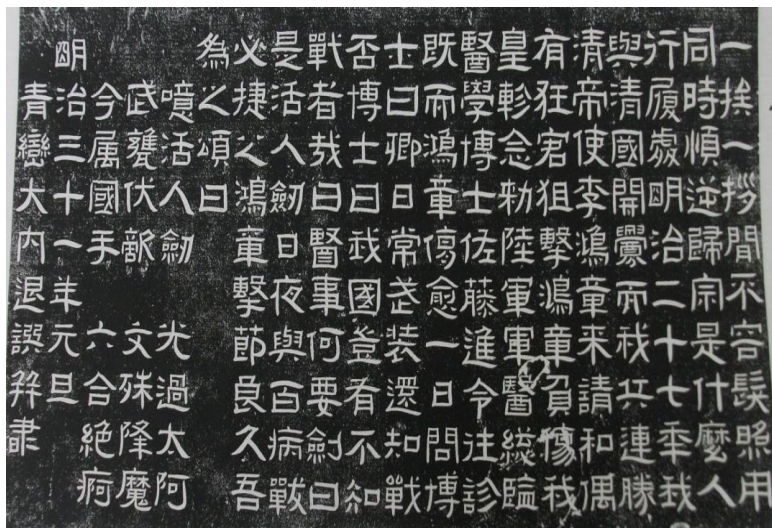 一挨一拶間不容髮照用
同時順逆歸宗是什麼人
行履處朙治二十七秊我
與清國開釁而我兵連勝
清帝使李鴻章来請和偶
有狂客狙擊鴻章負傷我
皇軫念勅陸軍軍醫総監
醫學博士佐藤進令往診
既而鴻章傷愈一日問博
士曰卿日常武装還知戰
否博士曰我國豈有不知
戰者哉曰醫事何要劍曰
是活人劍日夜與百病戰
必捷之鴻章擊節良久吾
為之頌曰
噫活人劍 光過太阿
武甕伏敵 文殊降魔
今属國手 六合絶痾
朙治三十一年元旦
青巒大内退誤并書